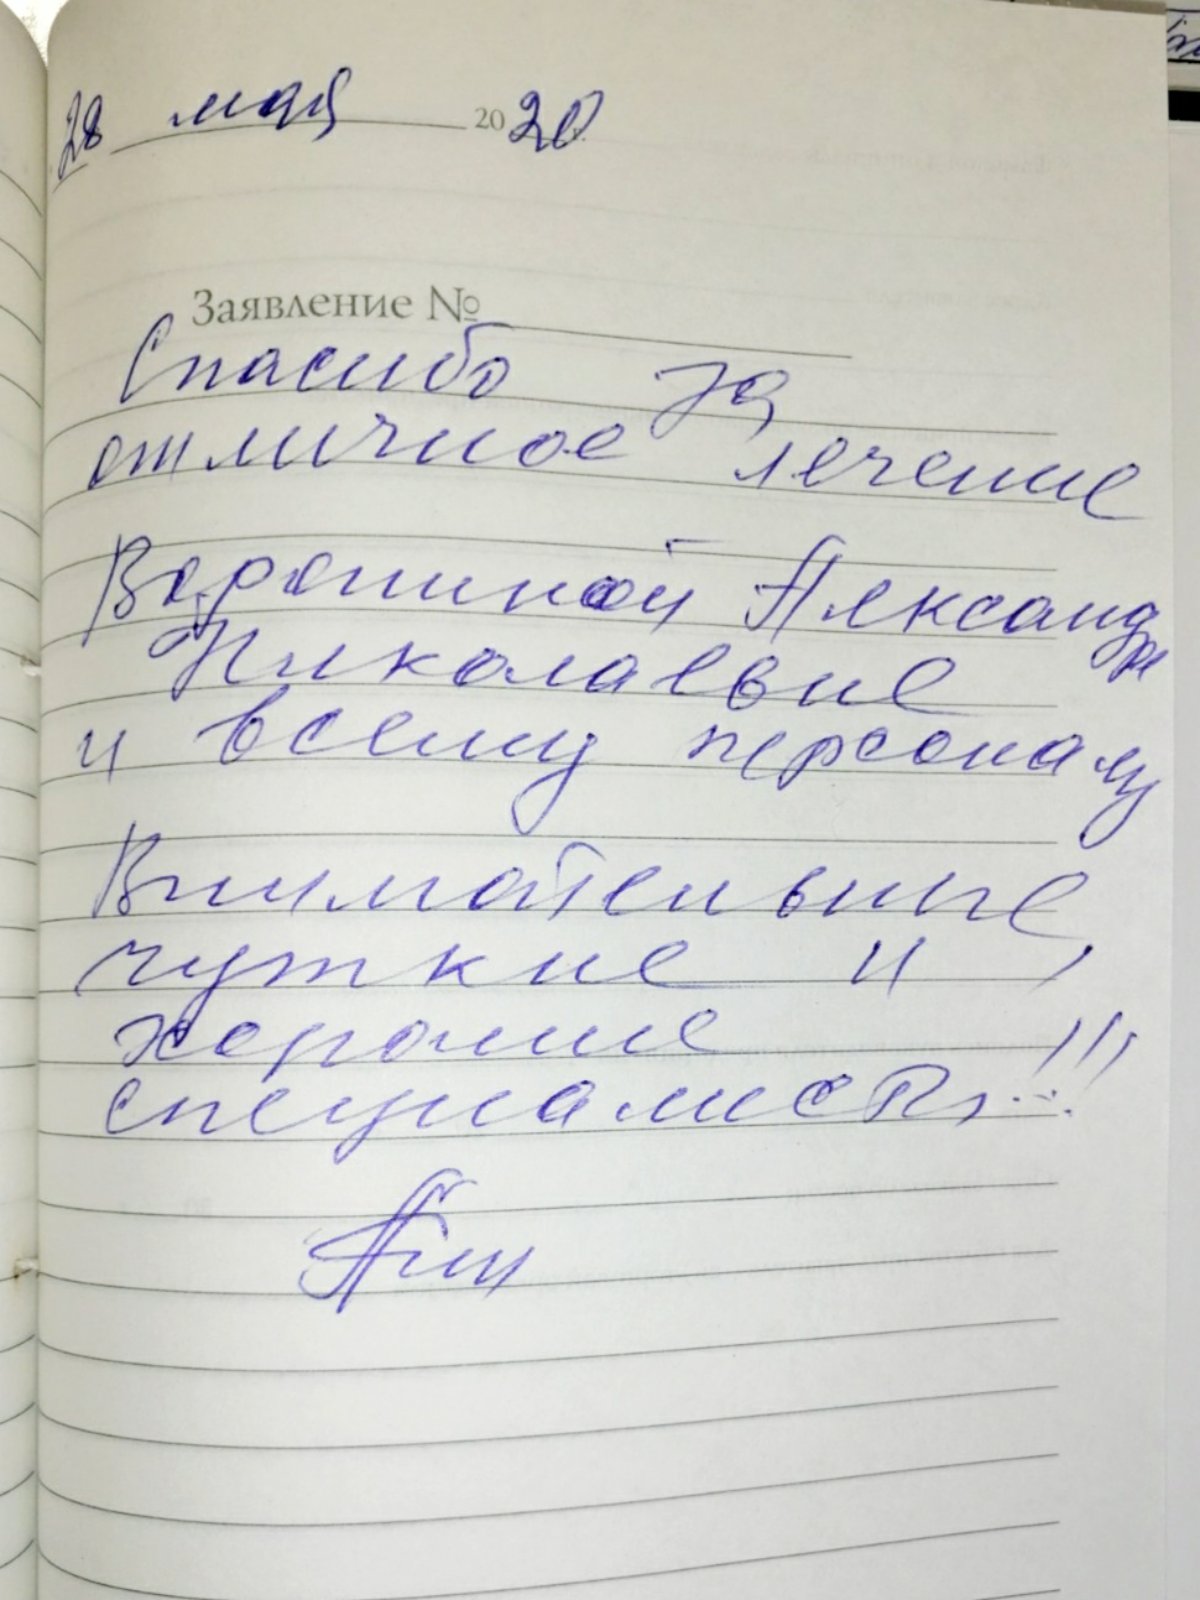 28 мая 2020
Заявление №
Спасибо за
отличное лечение
Ворониной Александре
Николаевне
и всему персоналу
Внимательные,
чуткие и
хорошие
специалисты!!!